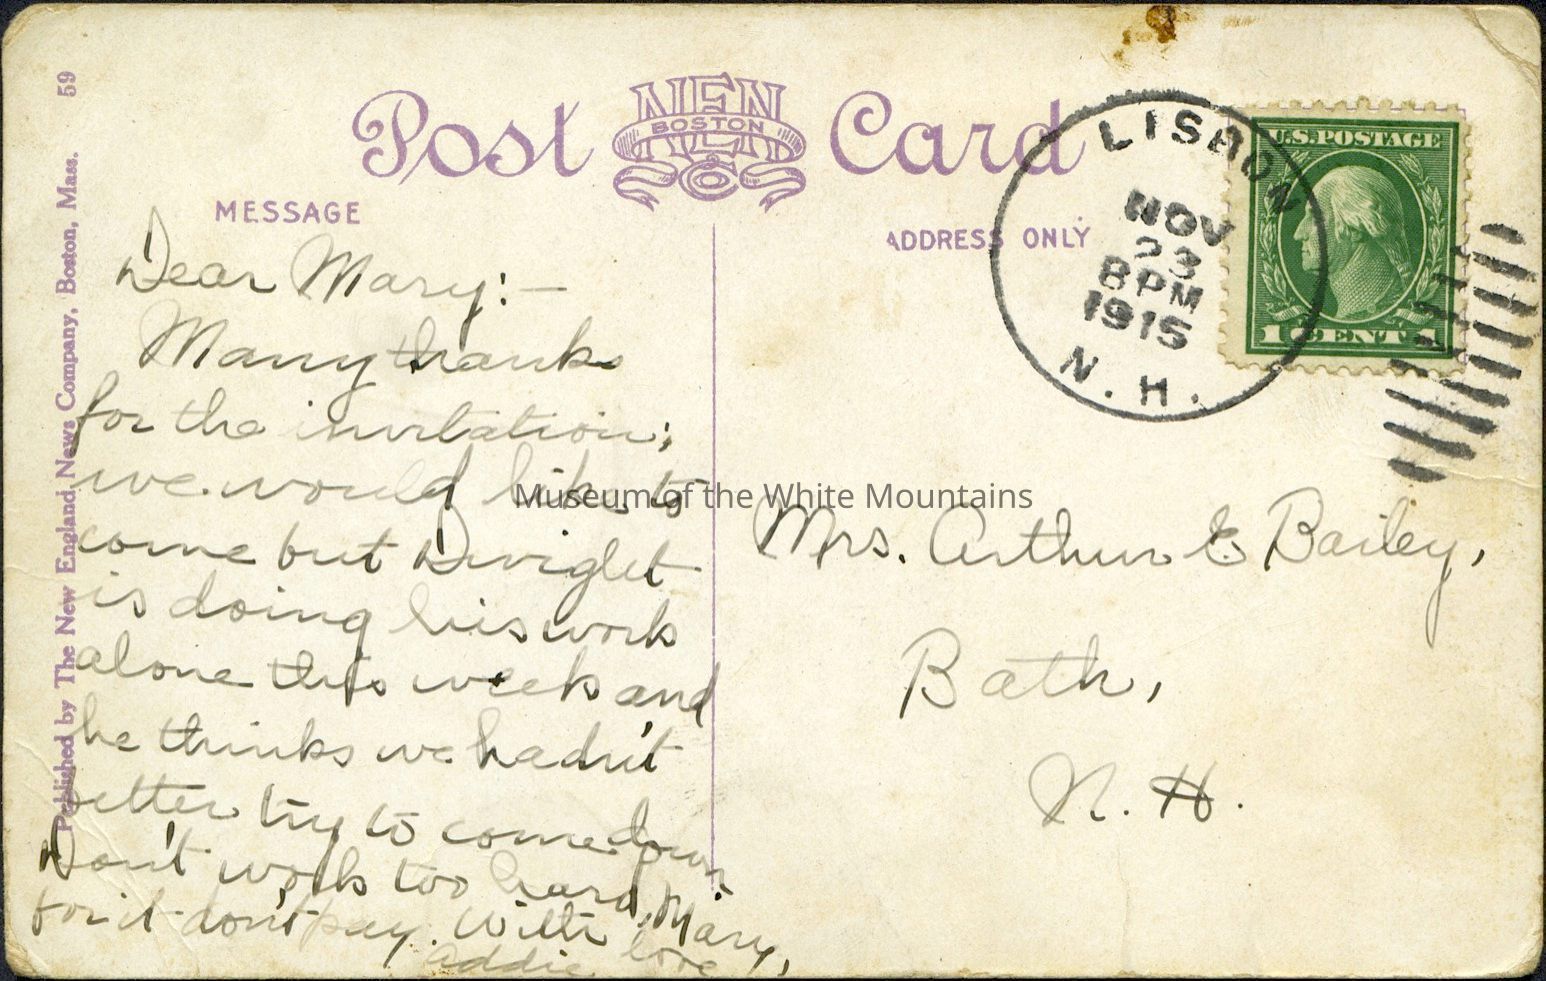 Published by The New England News Company, Boston, Mass. 59
Post Card
NEN
BOSTON
Co
MESSAGE
ADDRESS ONLY
LISBON
NOV
23
8 PM
1915
N. H.
U.S. POSTAGE
1 CENT 1
Dear Mary:—
Many thanks
for the invitation;
we would like to
come but Dwight
is doing his work
alone this week and
he thinks we hadn't
better try to come down.
Don't work too hard, Mary,
for it don't pay. With love
Addie
Mrs. Arthur E Bailey,
Bath,
N. H.
Museum of the White Mountains